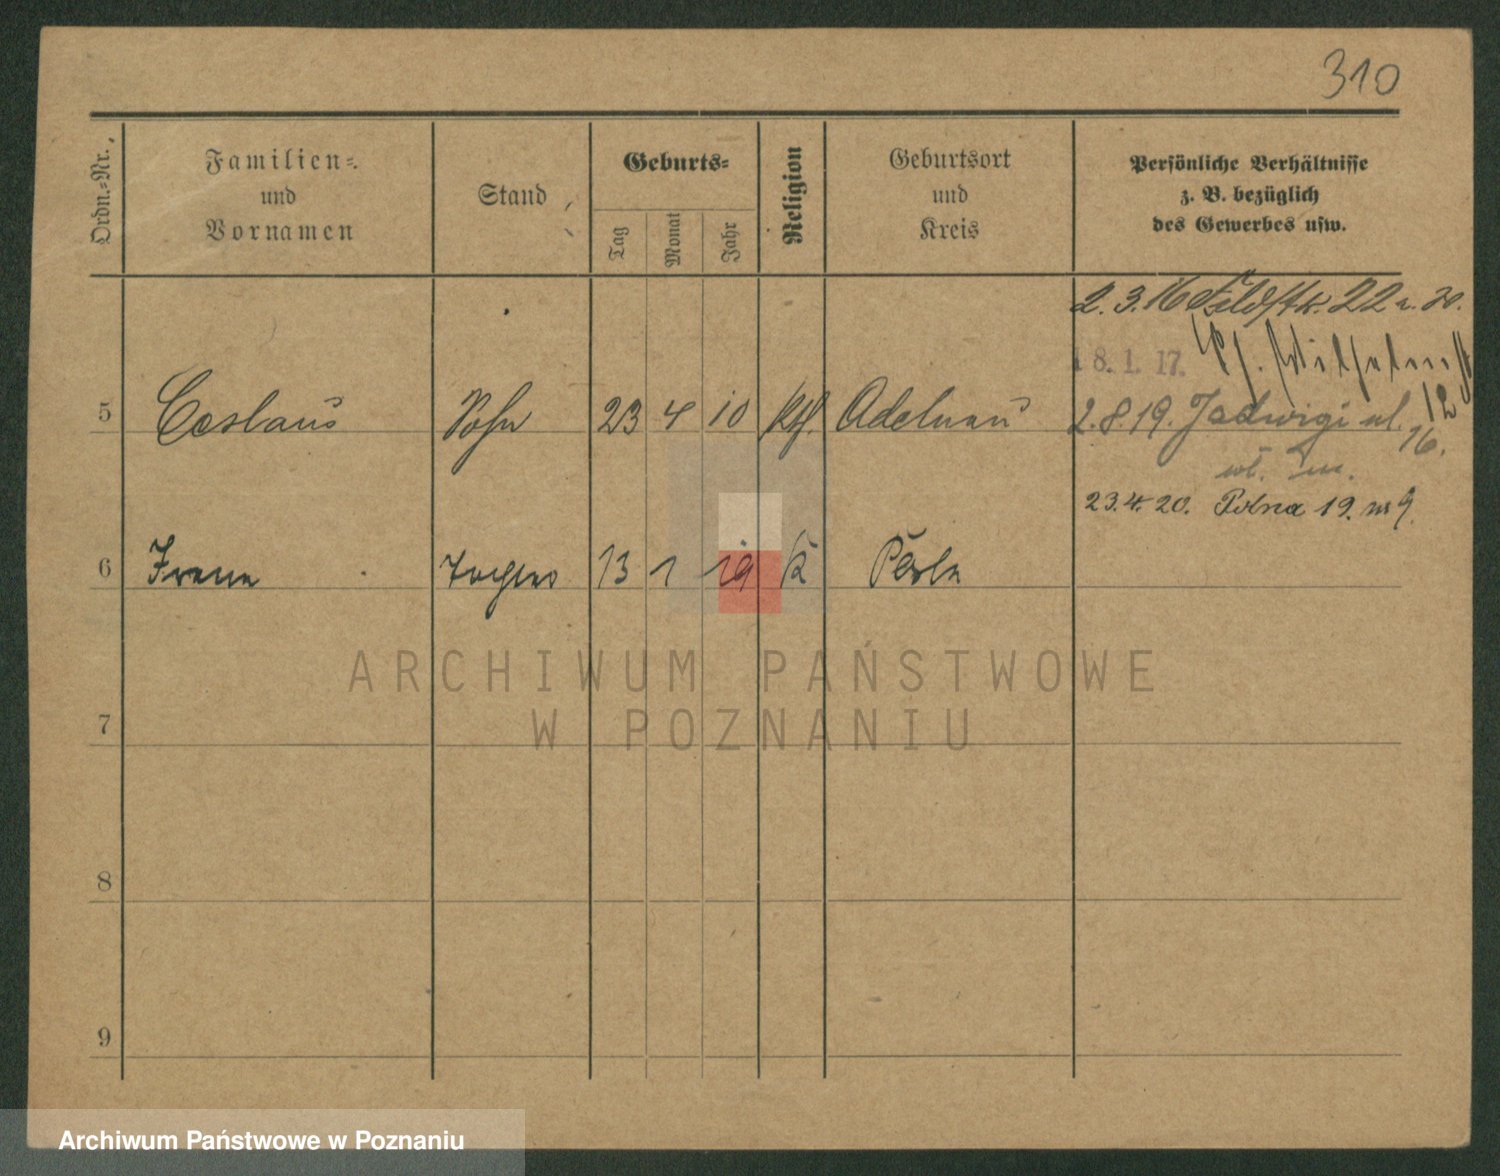 310
Ordn.-Nr.
Familien-
und
Vornamen
Stand
Geburts-
Tag
Monat
Jahr
Religion
Geburtsort
und
Kreis
Persönliche Verhältnisse
z. B. bezüglich
des Gewerbes usw.
2. 3. 16 Feldstr. 22
8. 1. 17.
5 Ceslaus Sohn 23 4 10 Kth. Adelnau
2.8.19. Jadwigi ul. 16.
12
23.4.20. Polna 19.
6 Irene Tochter 13 1 19 K
ARCHIWUM PAŃSTWOWE
W POZNANIU
7
8
9
Archiwum Państwowe w Poznaniu